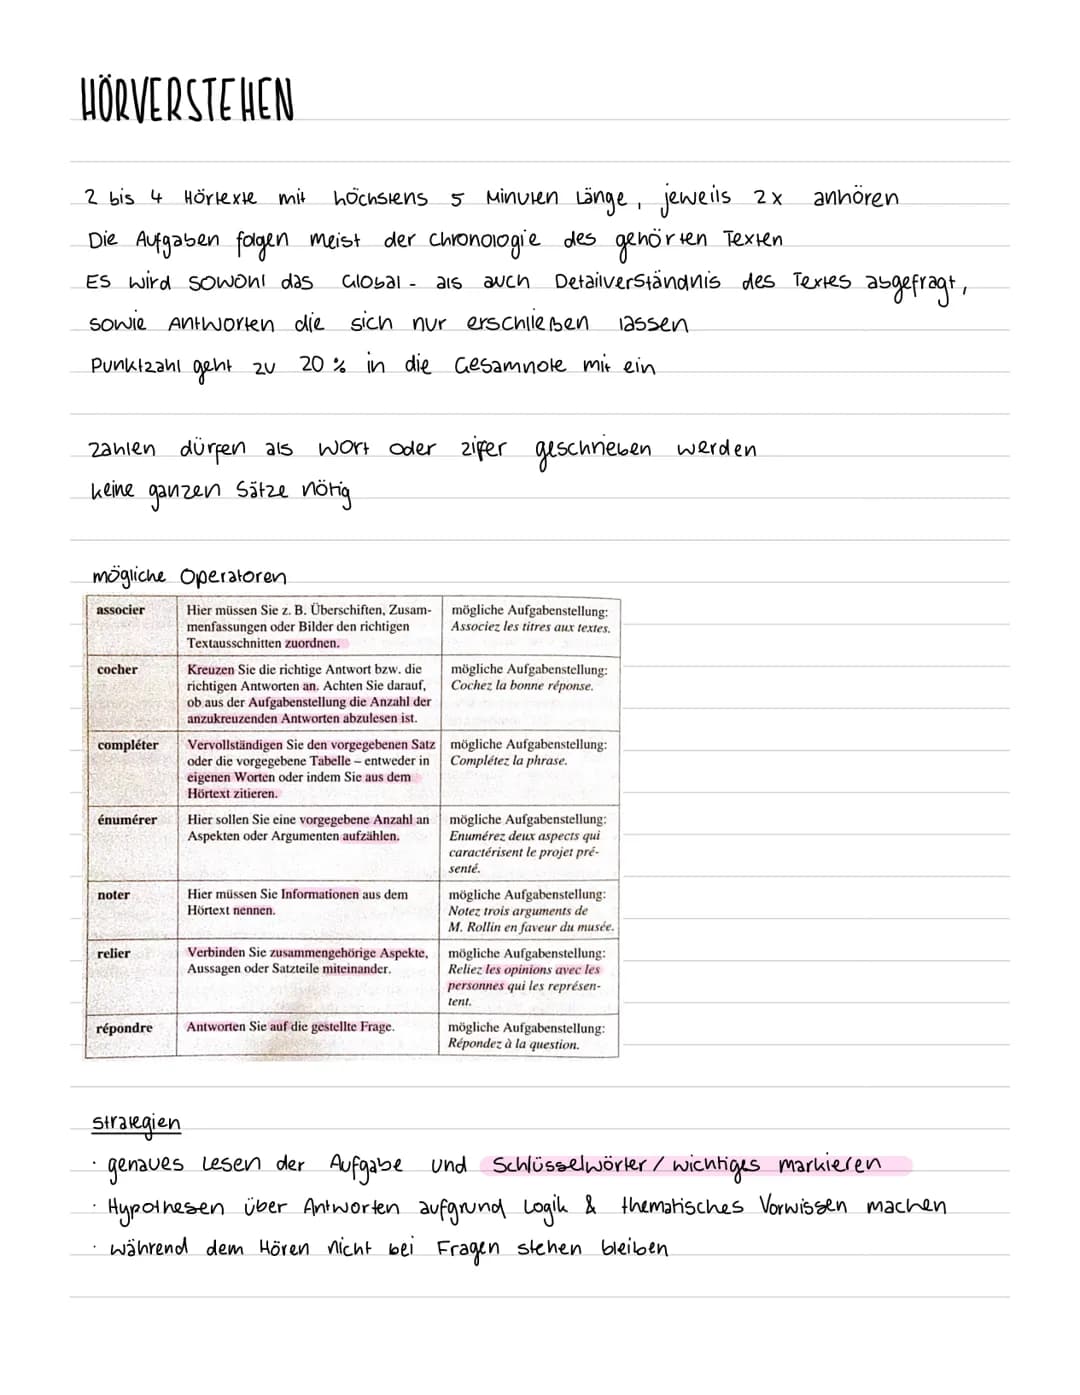 HÖRVERSTEHEN
2 bis 4 Hörtexte mit höchstens 5 Minuten Länge, jeweils 2x anhören
Die Aufgaben folgen meist der Chronologie des gehörten Texten
ES wird sowohl das Global- als auch Detailverständnis des Textes abgefragt,
sowie Antworten die sich nur erschließen lassen
Punktzahl geht zu 20% in die Gesamnote mit ein
Zahlen dürfen als Wort oder zifer geschrieben werden
keine ganzen Sätze nötig
mögliche Operatoren
associer
Hier müssen Sie z. B. Überschiften, Zusam-
menfassungen oder Bilder den richtigen
Textausschnitten zuordnen.
mögliche Aufgabenstellung:
Associez les titres aux textes.
cocher
Kreuzen Sie die richtige Antwort bzw. die
richtigen Antworten an. Achten Sie darauf,
ob aus der Aufgabenstellung die Anzahl der
anzukreuzenden Antworten abzulesen ist.
mögliche Aufgabenstellung:
Cochez la bonne réponse.
compléter
Vervollständigen Sie den vorgegebenen Satz
oder die vorgegebene Tabelle – entweder in
eigenen Worten oder indem Sie aus dem
Hörtext zitieren.
mögliche Aufgabenstellung:
Complétez la phrase.
énumérer
Hier sollen Sie eine vorgegebene Anzahl an
Aspekten oder Argumenten aufzählen.
mögliche Aufgabenstellung:
Enumérez deux aspects qui
caractérisent le projet pré-
senté.
noter
Hier müssen Sie Informationen aus dem
Hörtext nennen.
mögliche Aufgabenstellung:
Notez trois arguments de
M. Rollin en faveur du musée.
relier
Verbinden Sie zusammengehörige Aspekte,
Aussagen oder Satzteile miteinander.
mögliche Aufgabenstellung:
Reliez les opinions avec les
personnes qui les représen-
tent.
répondre
Antworten Sie auf die gestellte Frage.
mögliche Aufgabenstellung:
Répondez à la question.
Strategien
· genaues Lesen der Aufgabe und Schlüsselwörter / wichtiges markieren
· Hypothesen über Antworten aufgrund Logik & thematisches Vorwissen machen
· während dem Hören nicht bei Fragen stehen bleiben